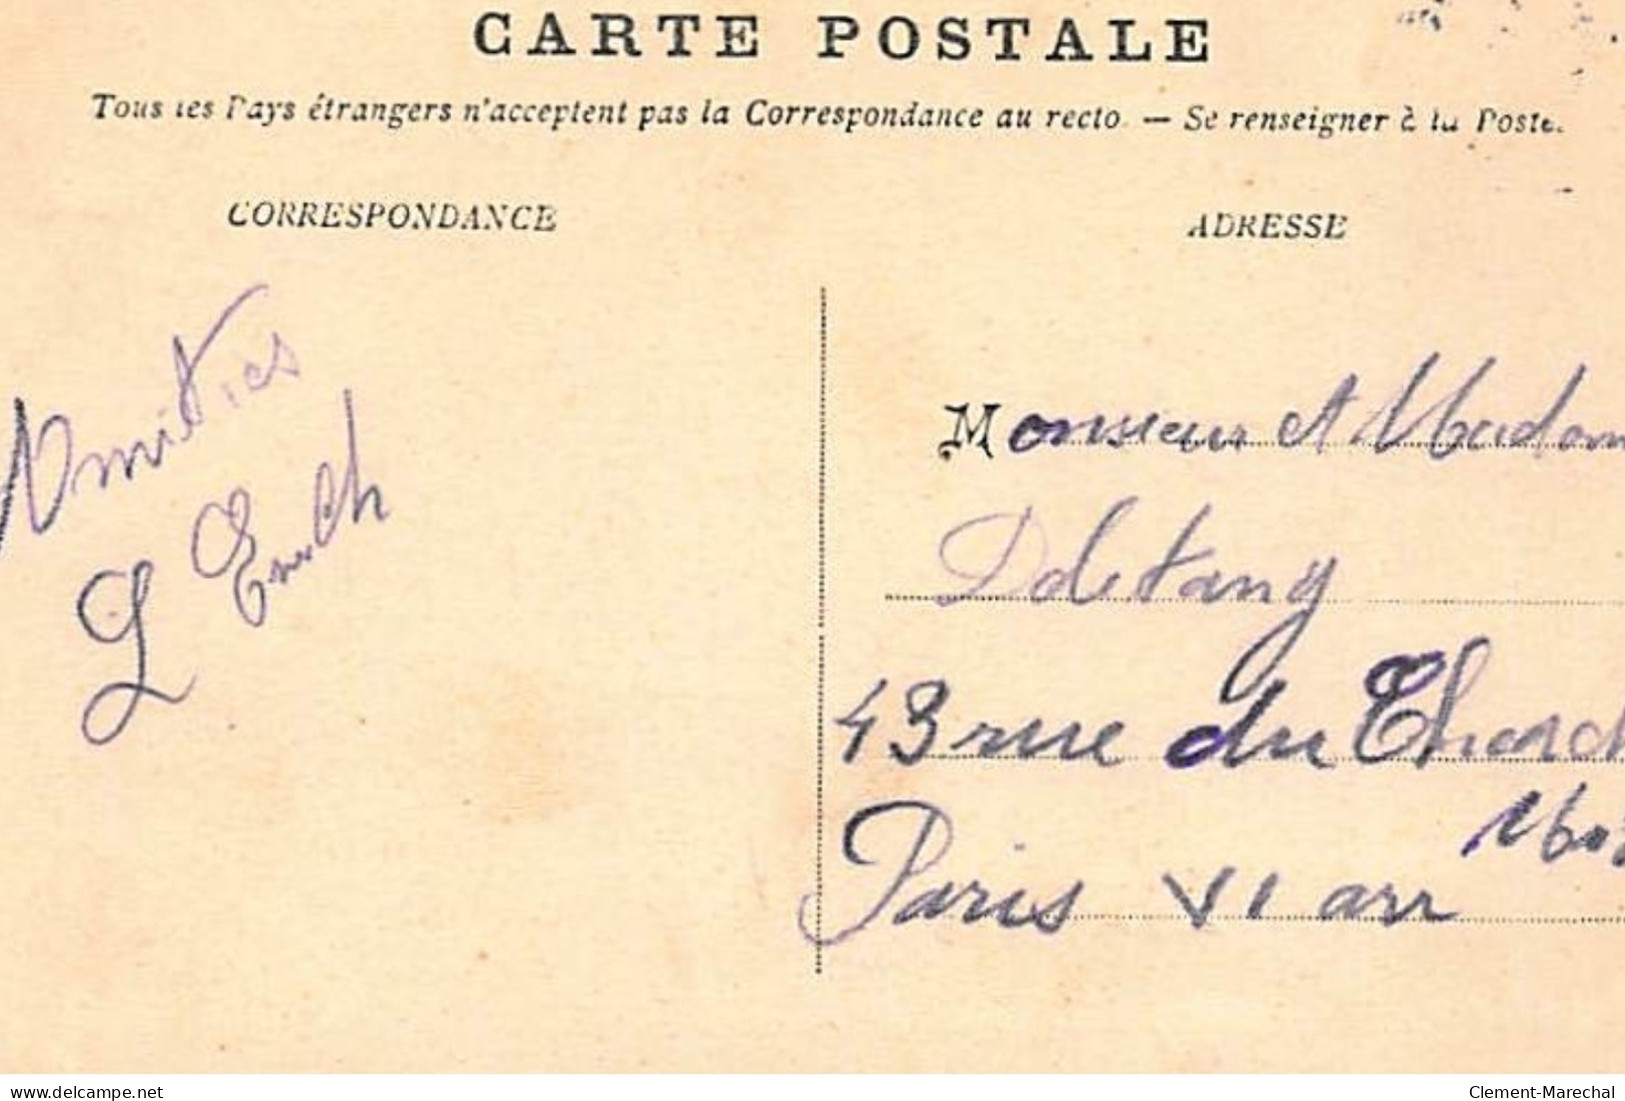 CARTE POSTALE
Tous les Pays étrangers n'acceptent pas la Correspondance au recto. — Se renseigner à la Poste.
CORRESPONDANCE
ADRESSE
Amitiés
L
Monsieur et Madam
43 rue du Cherch
Paris VI arr
www.delcampe.net
Clement-Marechal